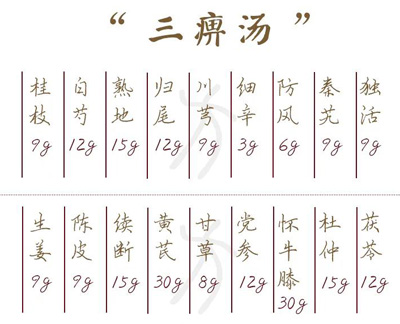 “三痹汤”
桂枝 9g 白芍 12g 熟地 15g 归尾 12g 川芎 9g 细辛 3g 防风 6g 秦艽 9g 独活 9g
生姜 9g 陈皮 9g 续断 15g 黄芪 30g 甘草 8g 党参 12g 怀牛膝 30g 杜仲 15g 茯苓 12g